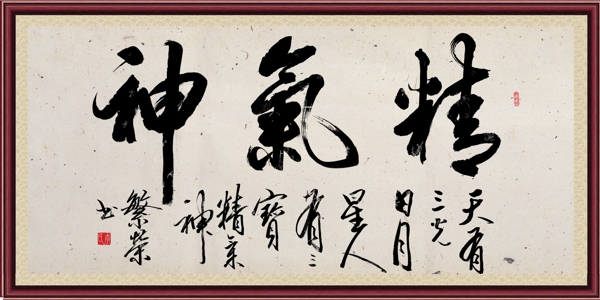 精氣神
天有
三光
日月
星人
有三
寶
精氣
神
繁榮
书